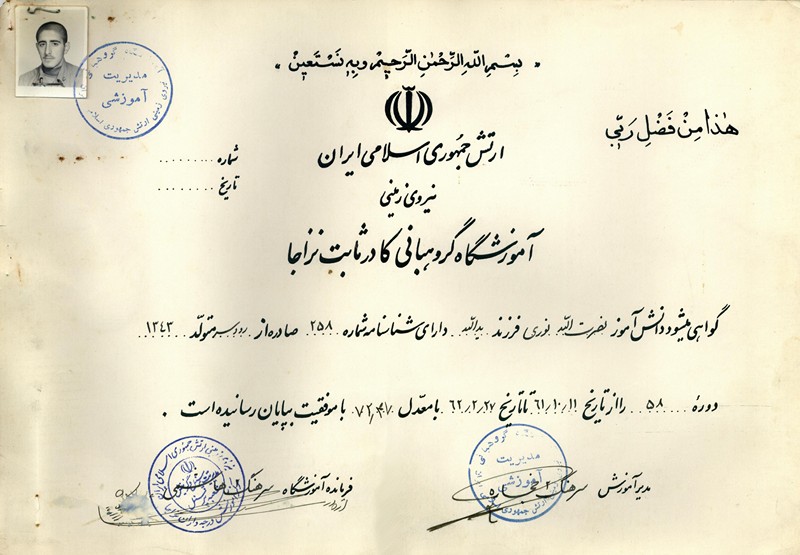 « بِسْمِ اللهِ الرَّحْمٰنِ الرَّحیِمْ وَبِهِ نَسْتَعیٖنْ »
هٰذا مِنْ فَضْلِ رَبّی
ارتش جمهوری اسلامی ایران
شماره .........
نیروی زمینی
تاریخ .........
آموزشگاه گروهبانی کادر ثابت نزاجا
گواهی میشود دانش آموز نصرت الله نوری فرزند یدالله دارای شناسنامه شماره ۲۵۸ صادره از رودسر متولد ۱۳۴۳
دورهٔ ۵۸ را از تاریخ ۶۱/۱۰/۱۱ تا تاریخ ۶۲/۲/۲۷ با معدل ۷۲/۴۷ با موفقیت بپایان رسانیده است .
مدیر آموزش سرهنگ ۲
فرمانده آموزشگاه سرهنگ ۲
مدیریت
آموزشی
نیروی زمینی ارتش جمهوری اسلامی
مدیریت
آموزشی